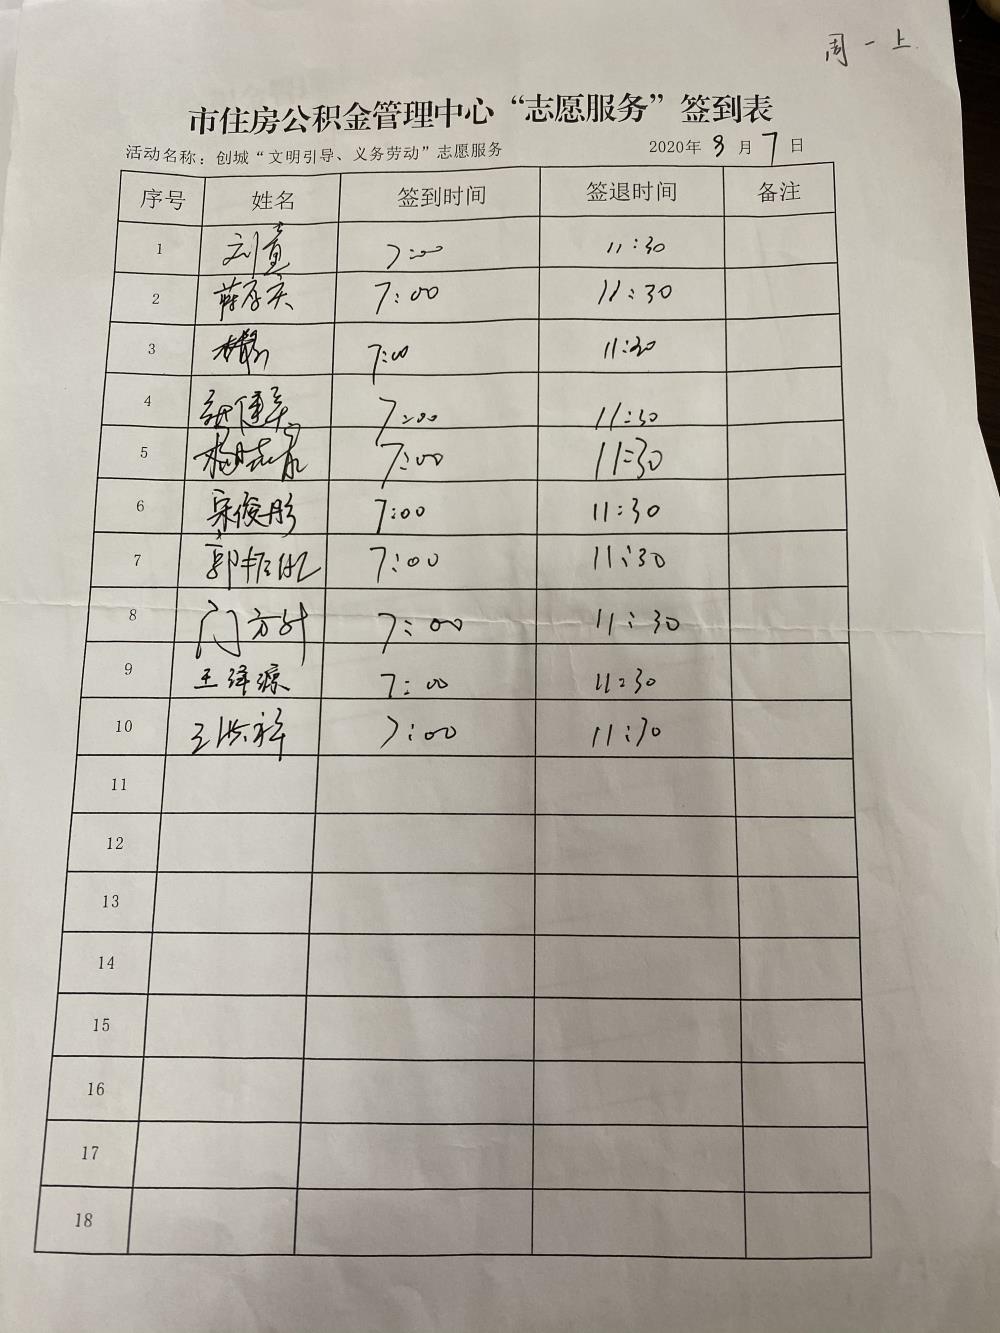 周一上
市住房公积金管理中心“志愿服务”签到表
活动名称：创城“文明引导、义务劳动”志愿服务 2020年 8 月 7 日
序号 姓名 签到时间 签退时间 备注
1 刘直 7:00 11:30
2 7:00 11:30
3 7:00 11:30
4 7:00 11:30
5 7:00 11:30
6 宋俊彤 7:00 11:30
7 7:00 11:30
8 门方针 7:00 11:30
9 王泽源 7:00 11:30
10 7:00 11:30
11
12
13
14
15
16
17
18